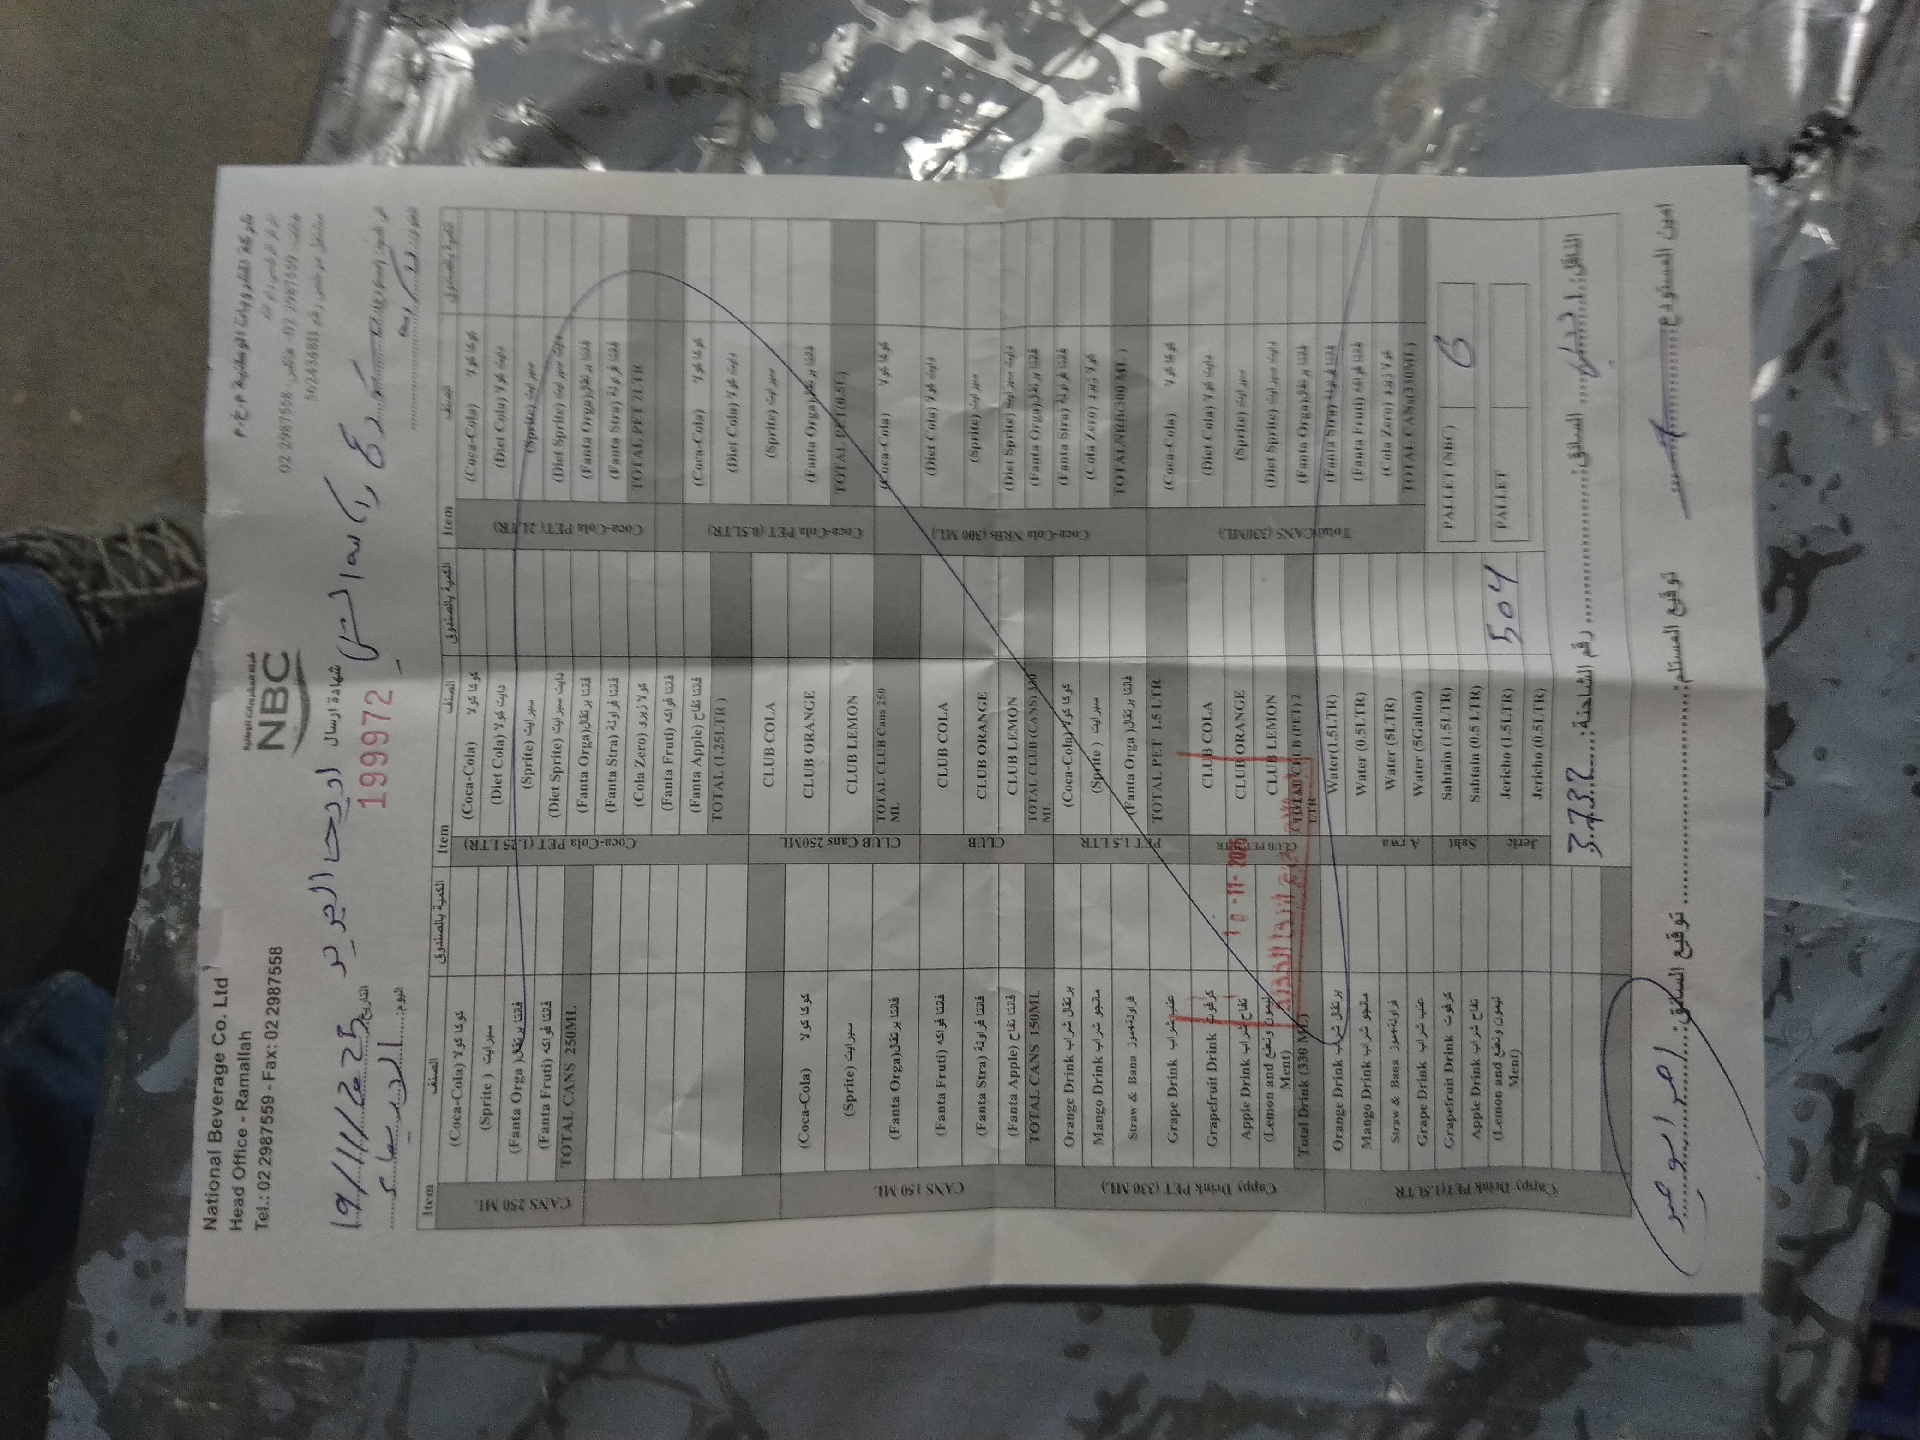 National Beverage Co. Ltd
Head Office - Ramallah
Tel.: 02 2987559 - Fax: 02 2987558
شركة المشروبات الوطنية
NBC
شركة المشروبات الوطنية م.خ.م
02 2987558 فاكس: 02 2987559
562434811
شهادة ارسال
اريحا الجديد
1999972
التاريخ: 19/11/2025
اليوم:
Item الصنف الكمية بالصندوق
CANS 250 ML
(Coca-Cola) كوكا كولا
(Sprite) سبرايت
(Fanta Orga) فانتا برتقال
(Fanta Fruti) فانتا فواكه
TOTAL CANS 250ML
CANS 150 ML
(Coca-Cola) كوكا كولا
(Sprite) سبرايت
(Fanta Orga) فانتا برتقال
(Fanta Fruti) فانتا فواكه
(Fanta Stra) فانتا فراولة
(Fanta Apple) فانتا تفاح
TOTAL CANS 150ML
Cappy Drink PET (330 ML)
Orange Drink برتقال شراب
Mango Drink مانجو شراب
Straw & Bana فراولة+موز
Grape Drink عنب شراب
Grapefruit Drink كرفوت
Apple Drink تفاح شراب
(Lemon and Ment) ليمون ونعنع
Total Drink (330 ML)
Cappy Drink PET(1.5LTR
Orange Drink برتقال شراب
Mango Drink مانجو شراب
Straw & Bana فراولة+موز
Grape Drink عنب شراب
Grapefruit Drink كرفوت شراب
Apple Drink تفاح شراب
(Lemon and Ment) ليمون ونعنع
Item الصنف الكمية بالصندوق
Coca-Cola PET (1.25 LTR)
(Coca-Cola) كوكا كولا
(Diet Cola) دايت كولا
(Sprite) سبرايت
(Diet Sprite) دايت سبرايت
(Fanta Orga) فانتا برتقال
(Fanta Stra) فانتا فراولة
(Cola Zero) كولا زيرو
(Fanta Fruti) فانتا فواكه
(Fanta Apple) فانتا تفاح
TOTAL (1.25LTR)
CLUB Cans 250ML
CLUB COLA
CLUB ORANGE
CLUB LEMON
TOTAL CLUB Cans 250 ML
CLUB
CLUB COLA
CLUB ORANGE
CLUB LEMON
TOTAL CLUB (CANS) 330 ML
PET 1.5 LTR
(Coca-Cola) كوكا كولا
(Sprite) سبرايت
(Fanta Orga) فانتا برتقال
TOTAL PET 1.5 LTR
CLUB COLA
CLUB ORANGE
CLUB LEMON
TOTAL CLUB (PET) 2 LTR
10-11-2025
Arwa
Water(1.5LTR)
Water (0.5LTR)
Water (5LTR)
Water (5Gallon)
Saht
Sahtain (1.5LTR)
Sahtain (0.5 LTR)
Jeric
Jericho (1.5LTR) 504
Jericho (0.5LTR)
Item الصنف الكمية بالصندوق
Coca-Cola PET( 2LTR)
(Coca-Cola) كوكا كولا
(Diet Cola) دايت كولا
(Sprite) سبرايت
(Diet Sprite) دايت سبرايت
(Fanta Orga) فانتا برتقال
(Fanta Stra) فانتا فراولة
TOTAL PET 2LTR
Coca-Cola PET (0.5LTR)
(Coca-Cola) كوكا كولا
(Diet Cola) دايت كولا
(Sprite) سبرايت
(Fanta Orga) فانتا برتقال
TOTAL PET(0.5L)
Coca-Cola NRBs (300 ML)
(Coca-Cola) كوكا كولا
(Diet Cola) دايت كولا
(Sprite) سبرايت
(Diet Sprite) دايت سبرايت
(Fanta Orga) فانتا برتقال
(Fanta Stra) فانتا فراولة
(Cola Zero) كولا زيرو
TOTAL NRB(300 ML)
Total CANS (330ML)
(Coca-Cola) كوكا كولا
(Diet Cola) دايت كولا
(Sprite) سبرايت
(Diet Sprite) دايت سبرايت
(Fanta Orga) فانتا برتقال
(Fanta Stra) فانتا فراولة
(Fanta Fruti) فانتا فواكه
(Cola Zero) كولا زيرو
TOTAL CANs(330ML)
PALLET (NBC) 6
PALLET
رقم الشاحنة: 3732 السائق: الناقل:
توقيع السائق: توقيع المستلم: أمين المستودع